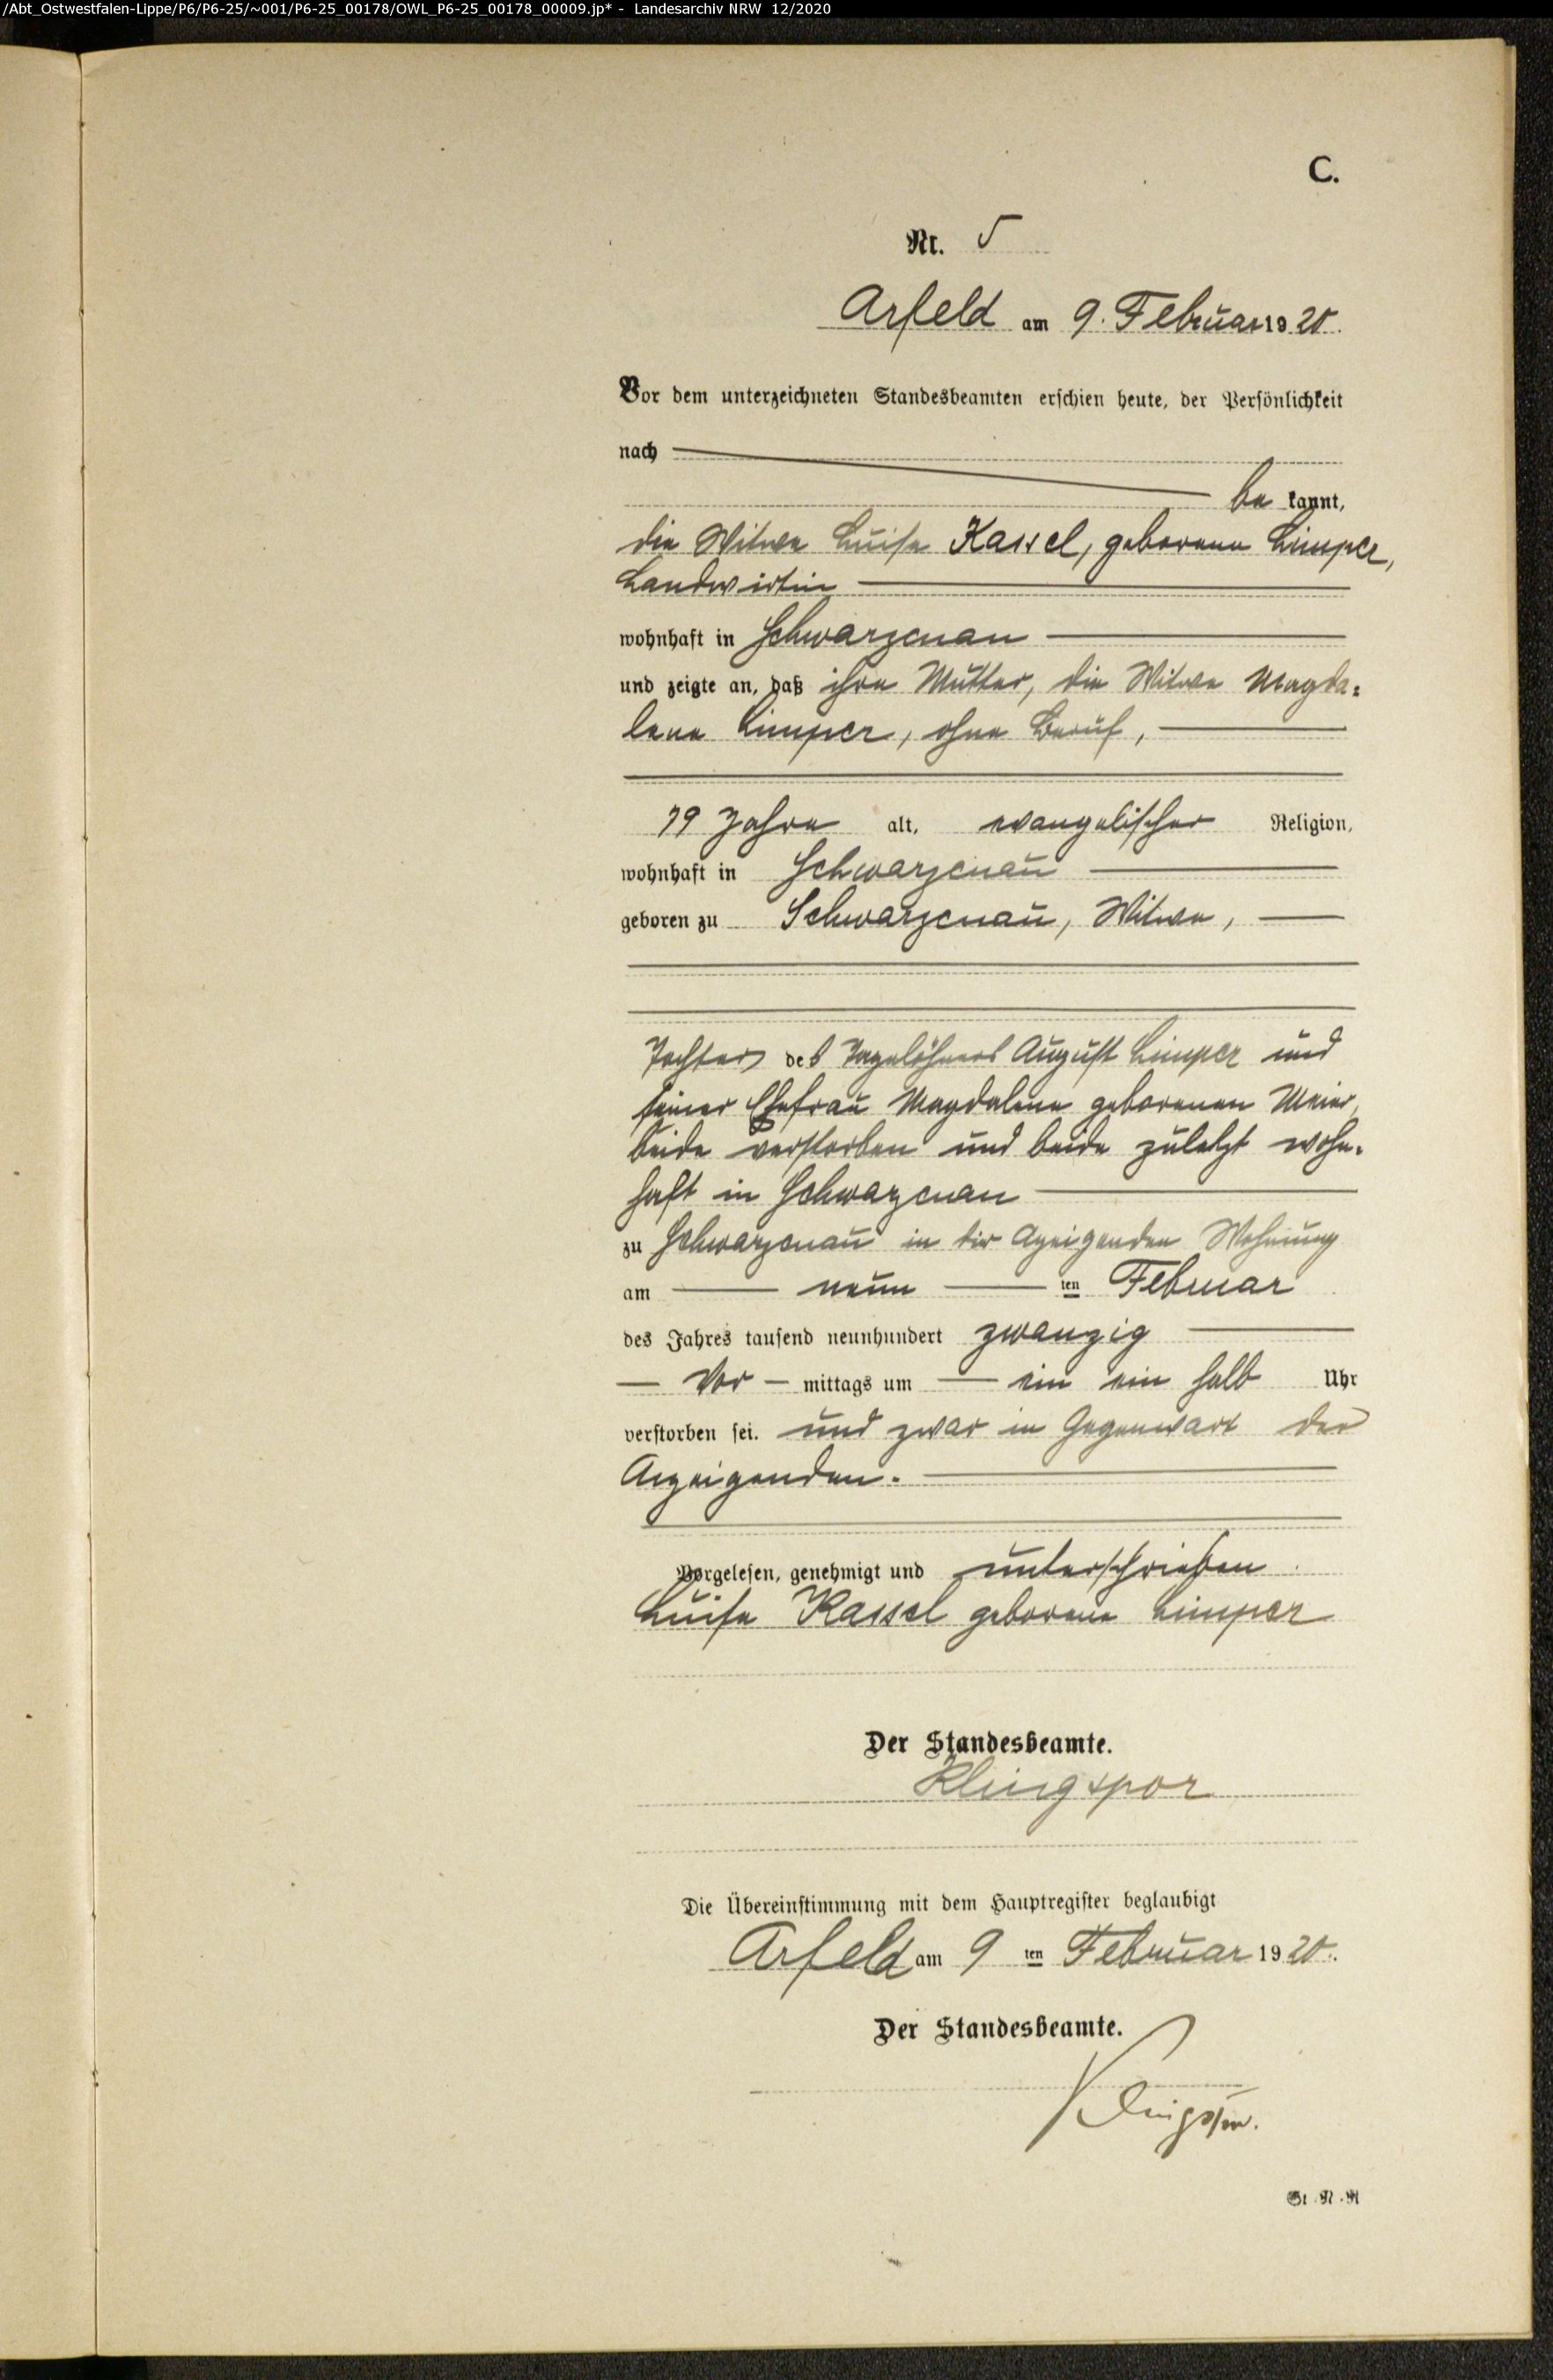 /Abt_Ostwestfalen-Lippe/P6/P6-25/~001/P6-25_00178/OWL_P6-25_00178_00009.jp* - Landesarchiv NRW 12/2020
C.
Nr. 5
Arfeld am 9. Februar 1920.
Vor dem unterzeichneten Standesbeamten erschien heute, der Persönlichkeit
nach
be kannt,
die Witwe Luise Kassel, geborene Limper,
Landwirtin
wohnhaft in Schwarzenau
und zeigte an, daß ihre Mutter, die Witwe Magda-
lene Limper, ohne Beruf,
79 Jahre alt, evangelischer Religion,
wohnhaft in Schwarzenau
geboren zu Schwarzenau, Witwe,
Tochter des Tagelöhners August Limper und
seiner Ehefrau Magdalene geborenen Meier,
beide verstorben und beide zuletzt wohn-
haft in Schwarzenau
zu Schwarzenau in der Wohnung
am neun ten Februar
des Jahres tausend neunhundert zwanzig
Vor mittags um ein ein halb Uhr
verstorben sei. und zwar in Gegenwart der
Anzeigenden.
Vorgelesen, genehmigt und unterschrieben
Luise Kassel geborene Limper
Der Standesbeamte.
Klingspor
Die Übereinstimmung mit dem Hauptregister beglaubigt
Arfeld am 9 ten Februar 1920.
Der Standesbeamte.
Klingspor.